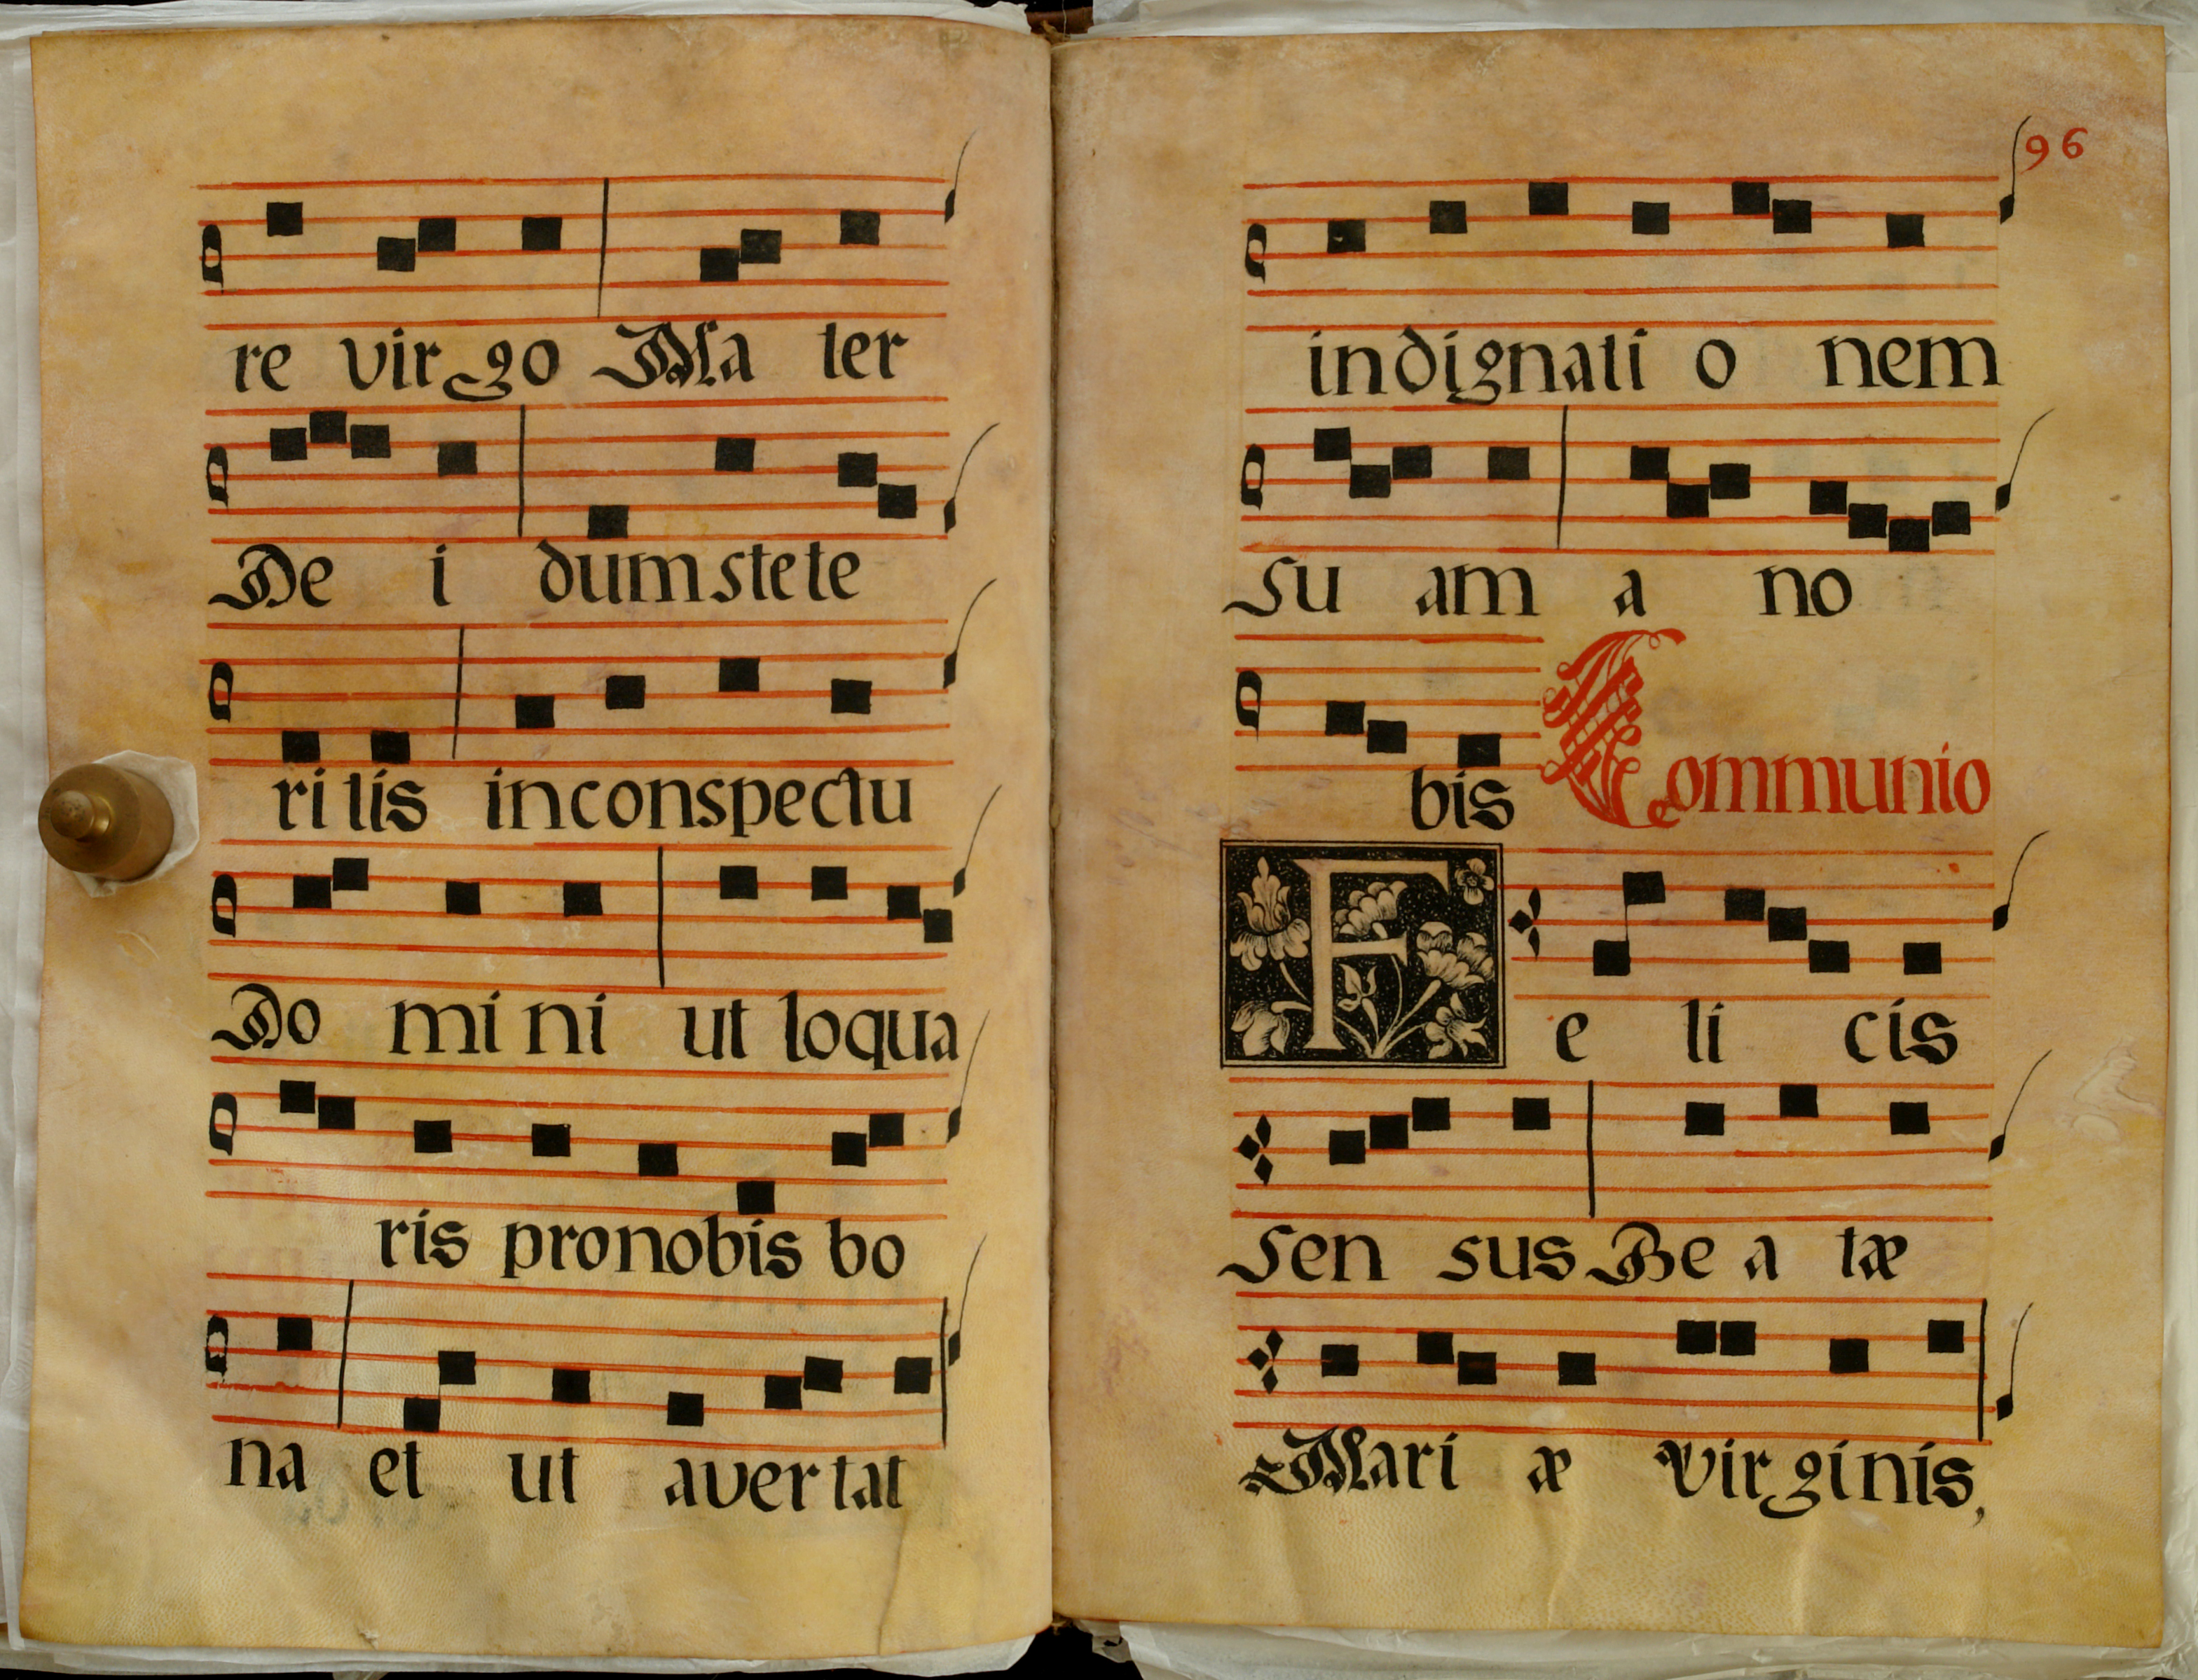 re virgo Ma ter
De i dum stete
ri tis in conspectu
Do mi ni ut loqua
ris pro nobis bo
na et ut aver tat
96
indignati o nem
su am a no
bis Communio
F e li cis
sen sus Be a tæ
Mari æ Virginis,